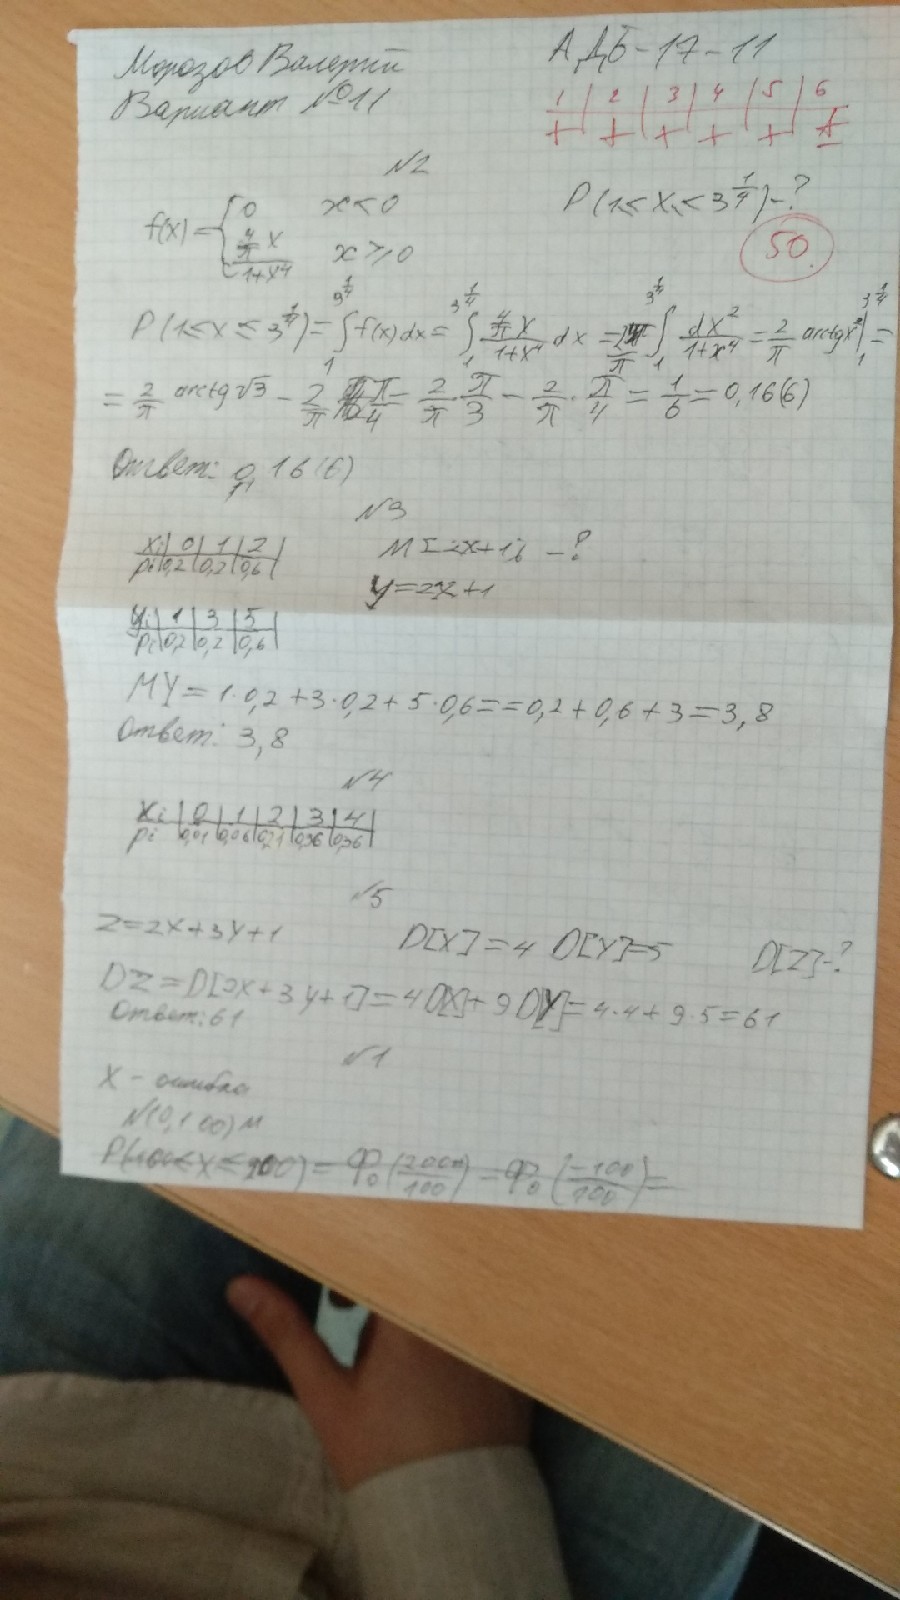 Морозов Валерий
Вариант №11
АДБ-17-11
1 | 2 | 3 | 4 | 5 | 6
+ | + | + | + | + | ±
50.
№2
f(x) = { 0 x < 0
4/π x / 1+x⁴ x ≥ 0
P(1 ≤ X ≤ 3^1/4) - ?
P(1 ≤ x ≤ 3^1/4) = ∫₁^3^1/4 f(x)dx = ∫₁^3^1/4 4/π x / 1+x⁴ dx = 2/π ∫₁^3^1/4 dx² / 1+x⁴ = 2/π arctg x² |₁^3^1/4 =
= 2/π arctg √3 - 2/π π/4 = 2/π · π/3 - 2/π · π/4 = 1/6 = 0,16(6)
Ответ: 0,16(6)
№3
xi | 0 | 1 | 2 |
pi | 0,2 | 0,2 | 0,6 |
M[2x+1] - ?
y = 2x+1
yi | 1 | 3 | 5 |
pi | 0,2 | 0,2 | 0,6 |
MY = 1·0,2 + 3·0,2 + 5·0,6 = = 0,2 + 0,6 + 3 = 3,8
Ответ: 3,8
№4
xi | 0 | 1 | 2 | 3 | 4 |
pi | 0,01 | 0,06 | 0,21 | 0,36 | 0,36 |
№5
Z = 2X + 3Y + 1 D[X] = 4 D[Y] = 5 D[Z] - ?
DZ = D[2X + 3Y + 1] = 4D[X] + 9D[Y] = 4·4 + 9·5 = 61
Ответ: 61
№1
X - ошибка
N(0,100) м
P(-100 ≤ X ≤ 200) = Ф₀(200/100) - Ф₀(-100/100) =